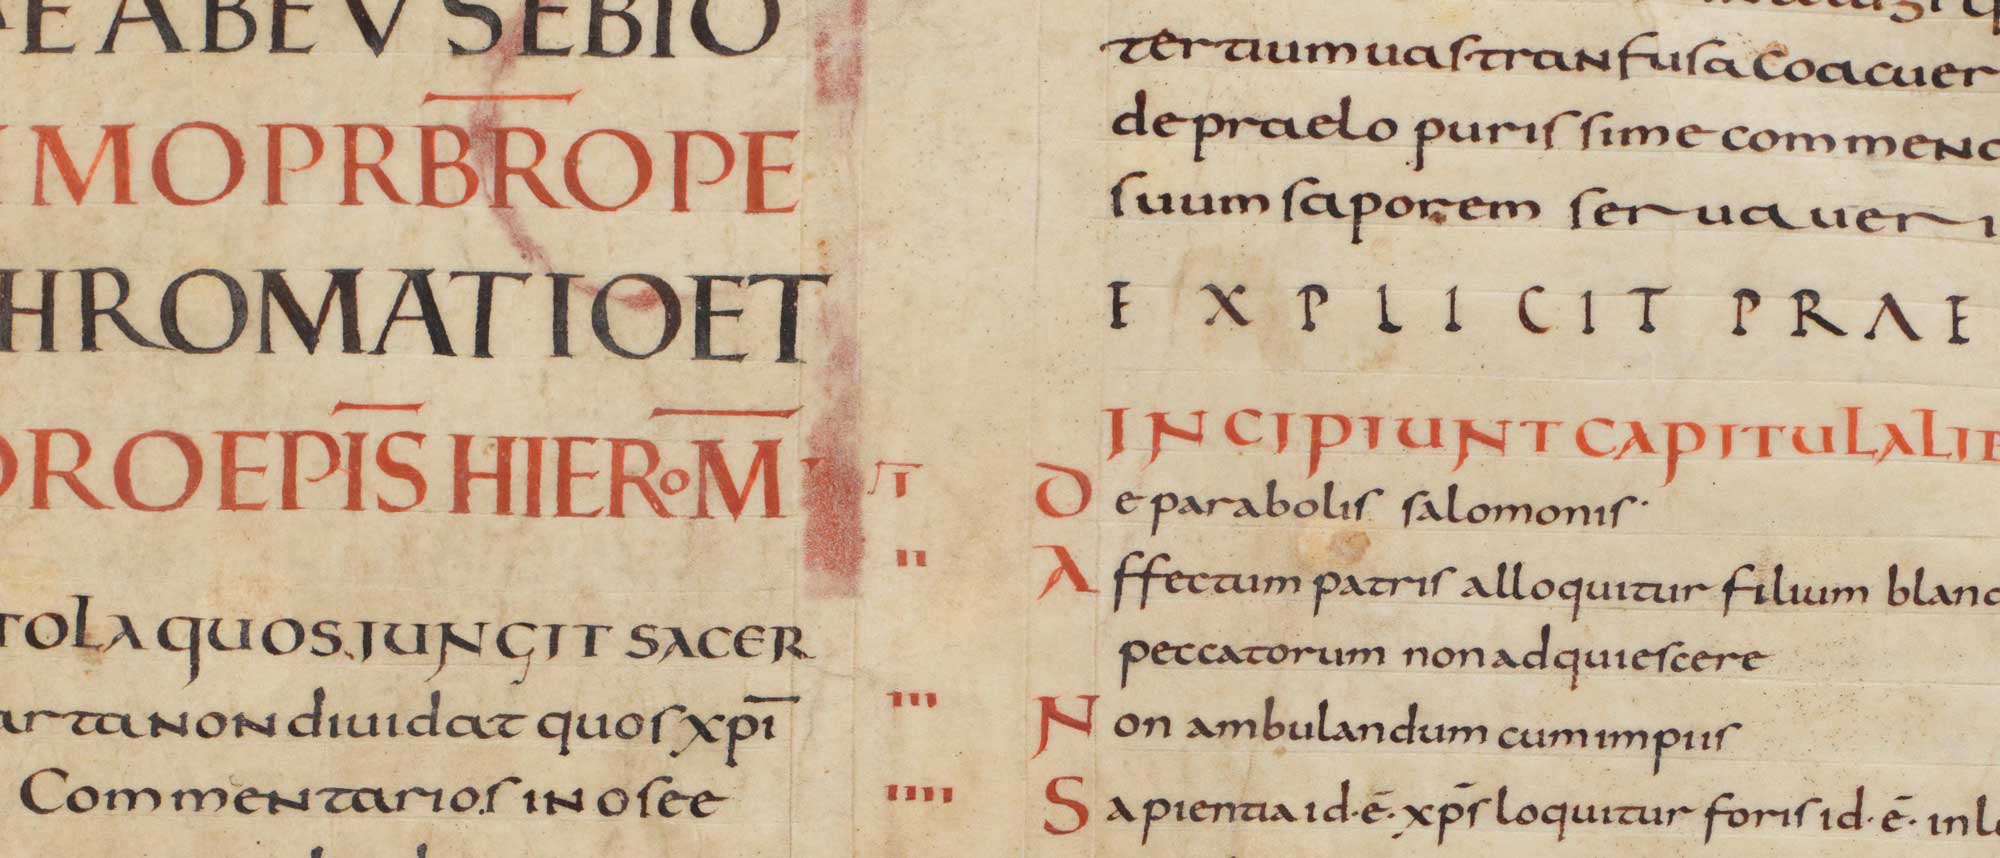 E ABEVSEBIO
MOPRBROPE
HROMATIOET
ROEPIS HIERoM
TOLA QUOS JUNGIT SACER
arta non diuidat quos xpi
Commentarios in osee
tertium uas transfusa coacuer
de praelo purissime commend
suum saporem seruaueri
EXPLICIT PRAE
INCIPIUNT CAPITULA LIB
I De parabolis salomonis·
II Affectum patris alloquitur filium bland
peccatorum non adquiescere
III Non ambulandum cum impiis
IIII Sapientia id·ē· xp̄s loquitur foris id·ē· in l